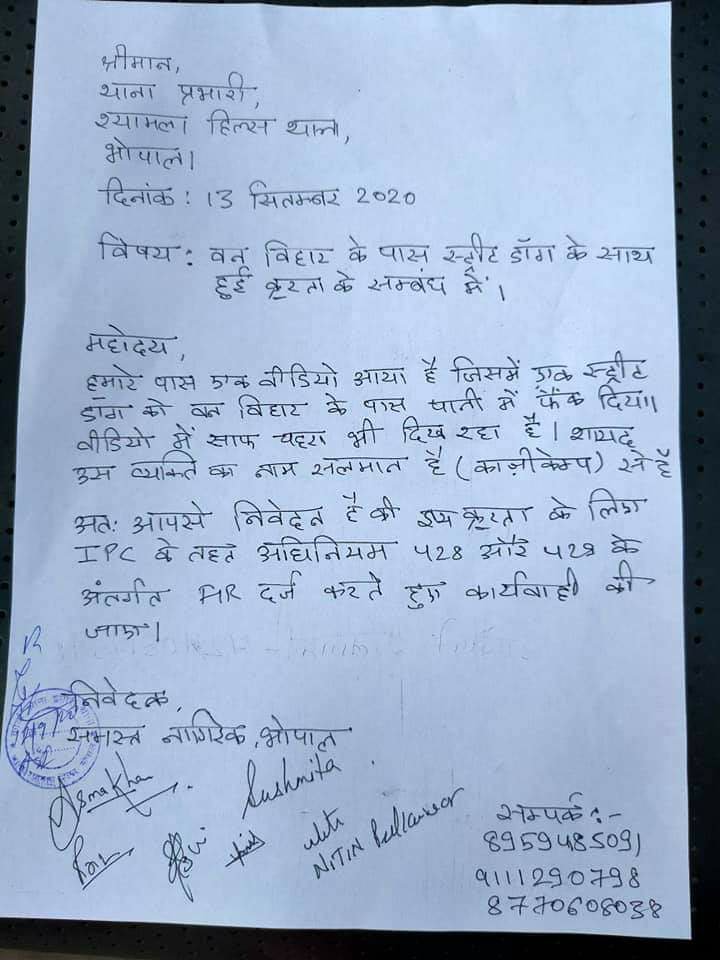 श्रीमान,
थाना प्रभारी,
श्यामला हिल्स थाना,
भोपाल।
दिनांक : 13 सितम्बर 2020
विषय : वन विहार के पास स्ट्रीट डॉग के साथ
हुई क्रूरता के सम्बंध में।
महोदय,
हमारे पास एक वीडियो आया है जिसमें एक स्ट्रीट
डॉग को वन विहार के पास पानी में फेंक दिया।
वीडियो में साफ चहरा भी दिख रहा है। शायद
उस व्यक्ति का नाम सलमान है (काज़ीकेम्प) से है
अतः आपसे निवेदन है की इस क्रूरता के लिए
IPC के तहत अधिनियम 428 और 429 के
अंतर्गत FIR दर्ज करते हुए कार्यवाही की
जाए।
निवेदक,
समस्त नागरिक, भोपाल
Asma Khan
Sushmita
NITIN
सम्पर्क :-
8959485091
9111290798
8770608038